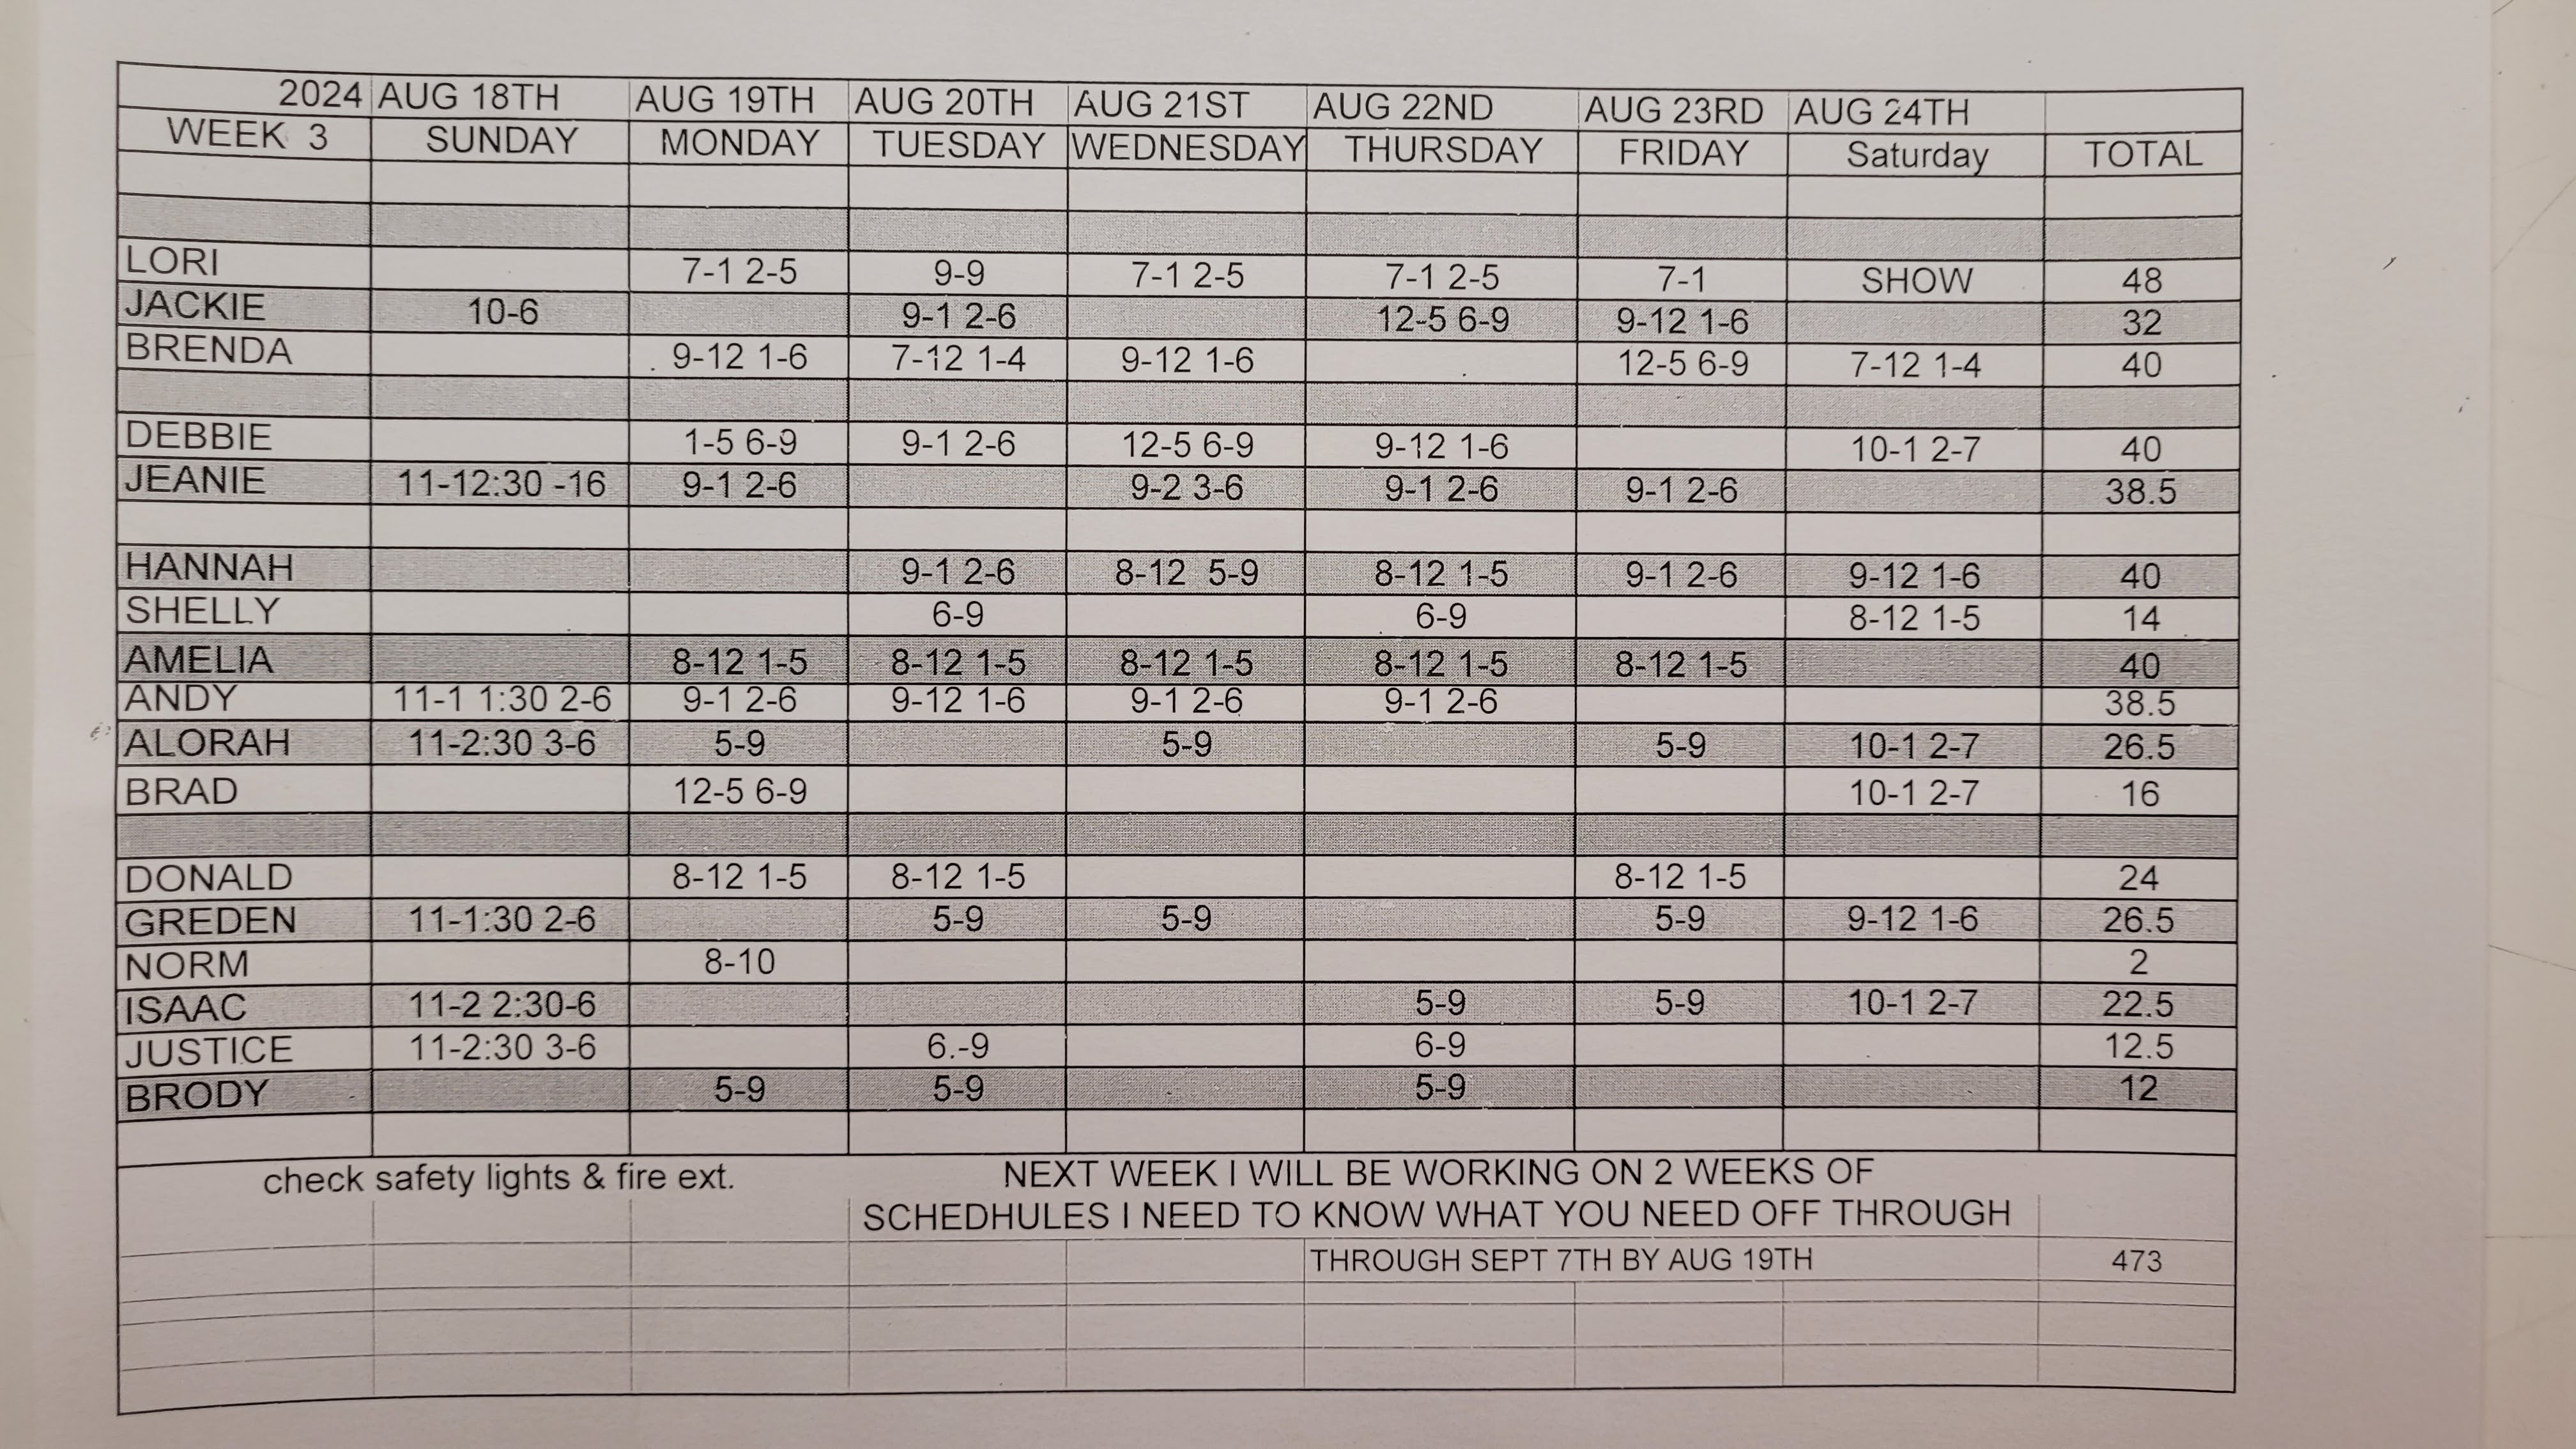 2024 AUG 18TH AUG 19TH AUG 20TH AUG 21ST AUG 22ND AUG 23RD AUG 24TH
WEEK 3 SUNDAY MONDAY TUESDAY WEDNESDAY THURSDAY FRIDAY Saturday TOTAL
LORI 7-1 2-5 9-9 7-1 2-5 7-1 2-5 7-1 SHOW 48
JACKIE 10-6 9-1 2-6 12-5 6-9 9-12 1-6 32
BRENDA 9-12 1-6 7-12 1-4 9-12 1-6 12-5 6-9 7-12 1-4 40
DEBBIE 1-5 6-9 9-1 2-6 12-5 6-9 9-12 1-6 10-1 2-7 40
JEANIE 11-12:30 -16 9-1 2-6 9-2 3-6 9-1 2-6 9-1 2-6 38.5
HANNAH 9-1 2-6 8-12 5-9 8-12 1-5 9-1 2-6 9-12 1-6 40
SHELLY 6-9 6-9 8-12 1-5 14
AMELIA 8-12 1-5 8-12 1-5 8-12 1-5 8-12 1-5 8-12 1-5 40
ANDY 11-1 1:30 2-6 9-1 2-6 9-12 1-6 9-1 2-6 9-1 2-6 38.5
ALORAH 11-2:30 3-6 5-9 5-9 5-9 10-1 2-7 26.5
BRAD 12-5 6-9 10-1 2-7 16
DONALD 8-12 1-5 8-12 1-5 8-12 1-5 24
GREDEN 11-1:30 2-6 5-9 5-9 5-9 9-12 1-6 26.5
NORM 8-10 2
ISAAC 11-2 2:30-6 5-9 5-9 10-1 2-7 22.5
JUSTICE 11-2:30 3-6 6.-9 6-9 12.5
BRODY 5-9 5-9 5-9 12
check safety lights & fire ext. NEXT WEEK I WILL BE WORKING ON 2 WEEKS OF
SCHEDHULES I NEED TO KNOW WHAT YOU NEED OFF THROUGH
THROUGH SEPT 7TH BY AUG 19TH 473